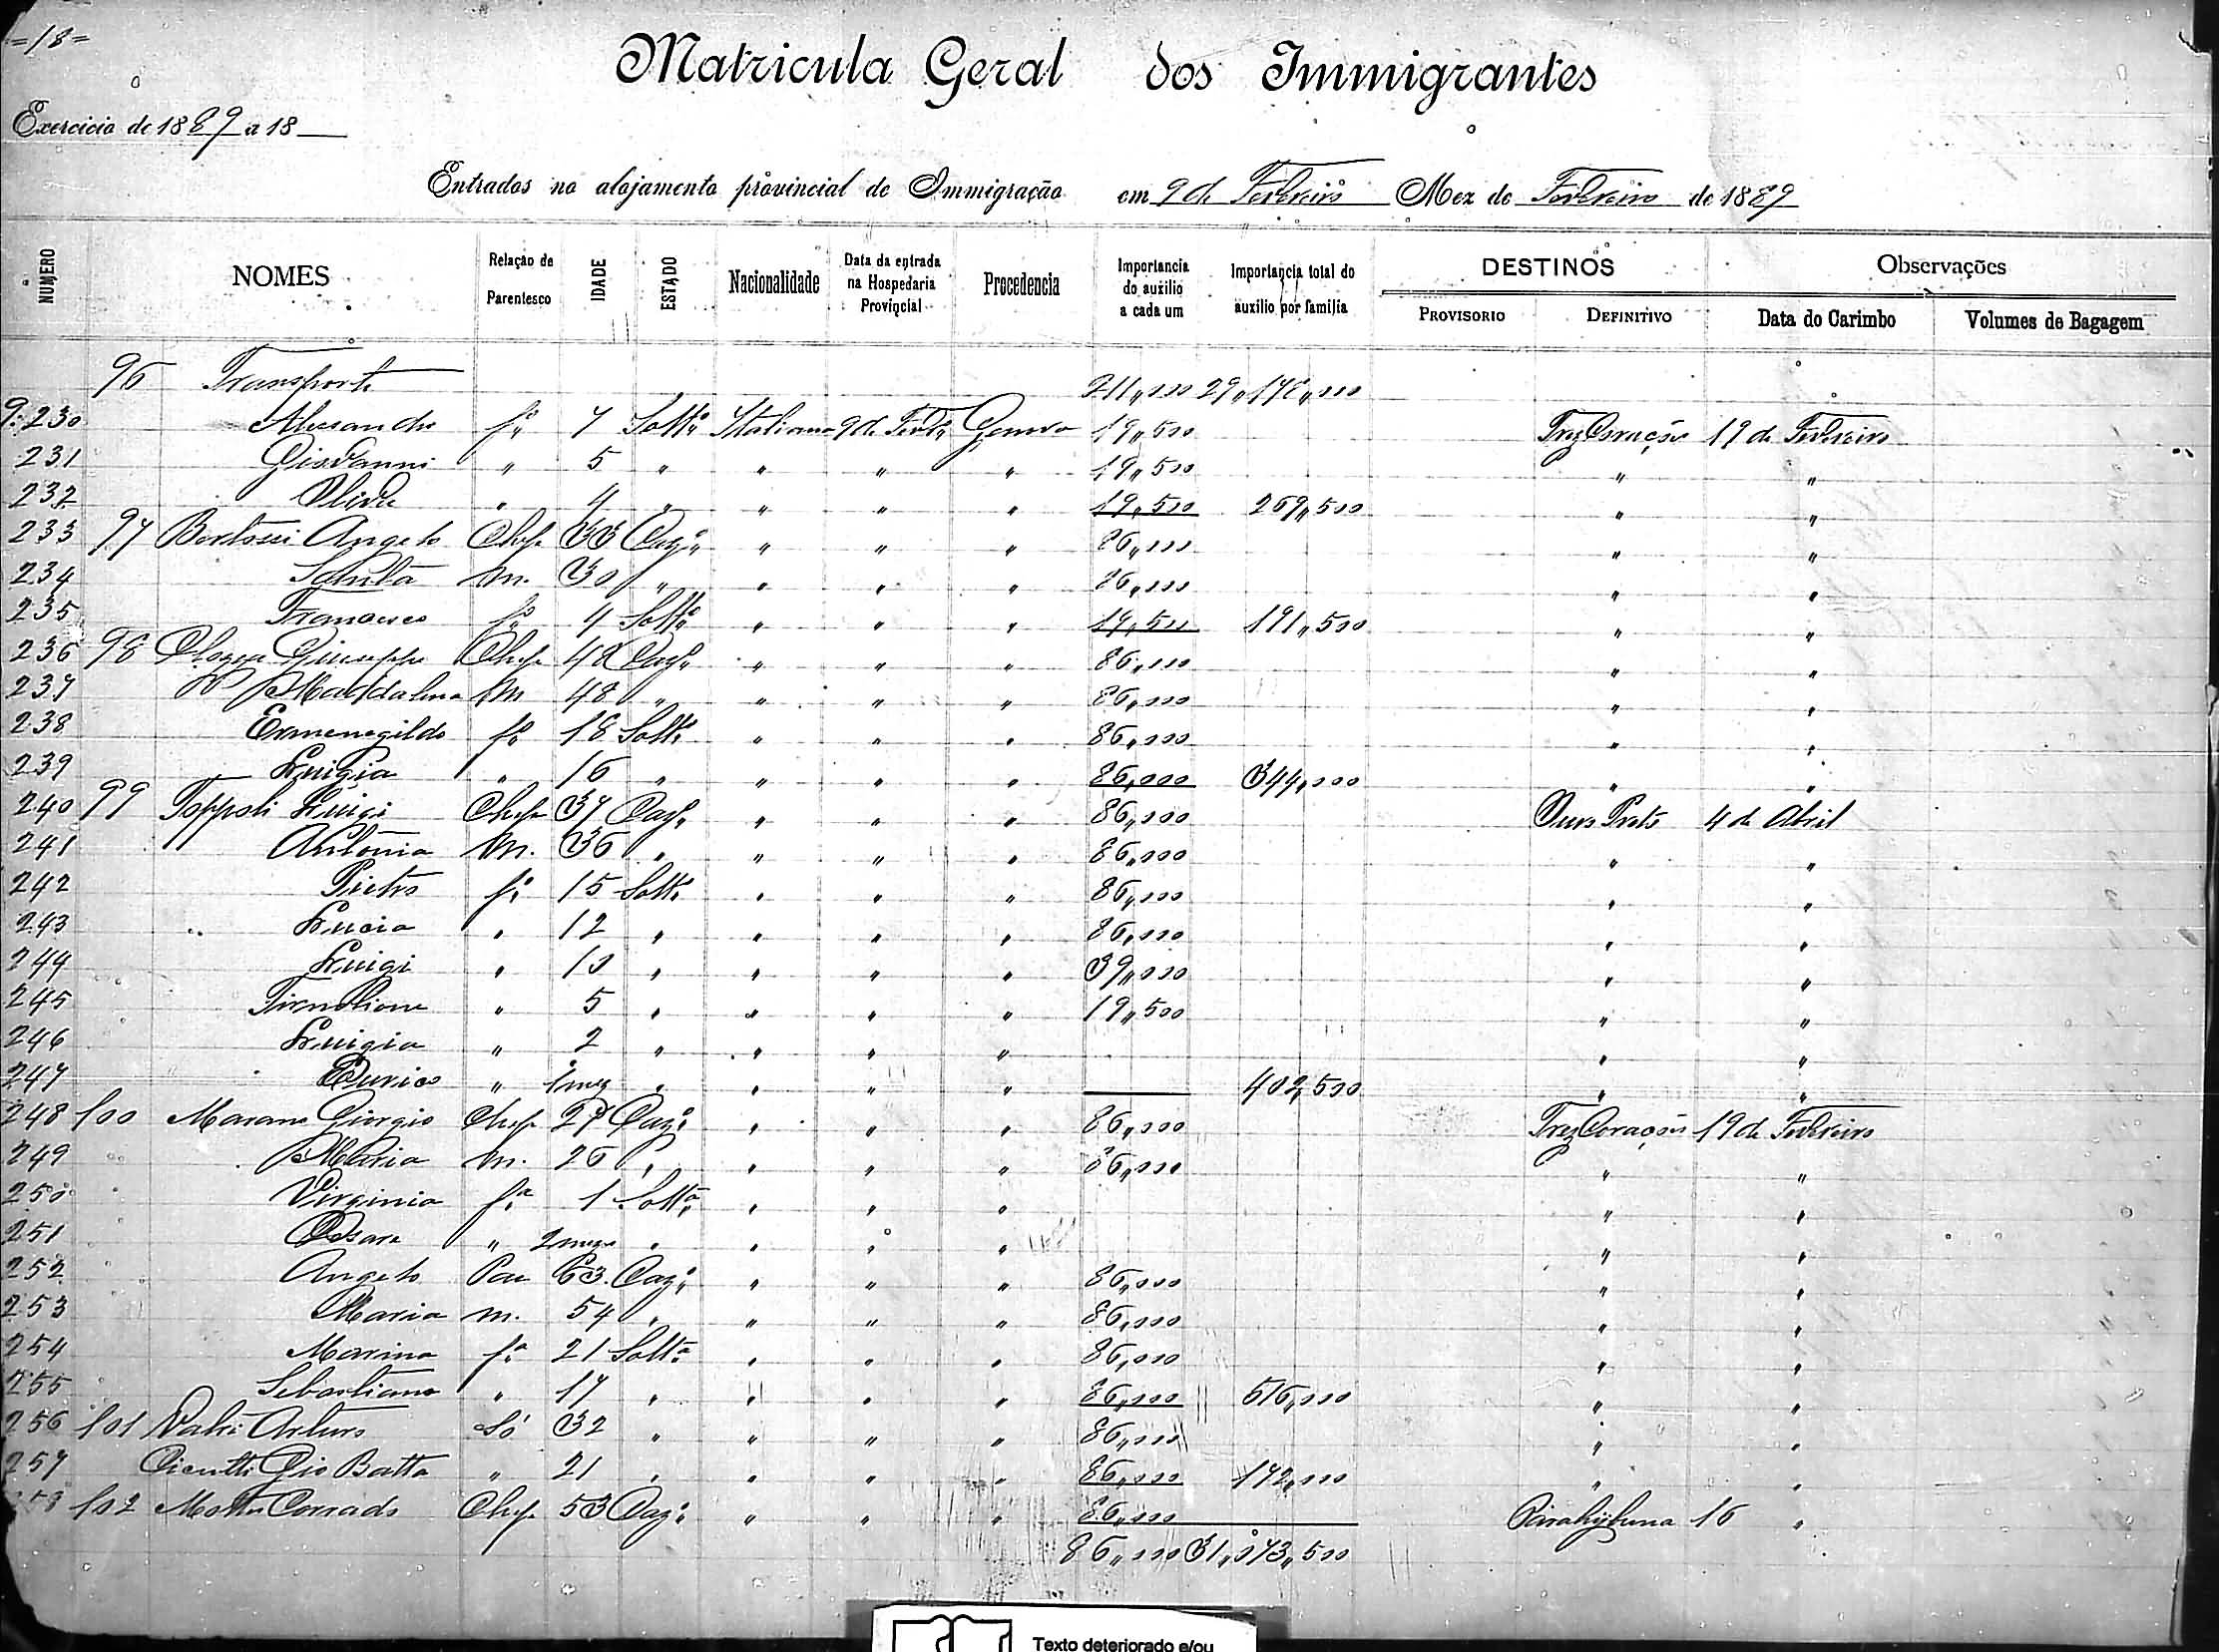 =18=
Matricula Geral dos Immigrantes
Exercicio de 1889 a 18
Entrados no alojamento provincial de Immigração em 9 de Fevereiro Mez de Fevereiro de 1889
NUMERO NOMES Relação de Parentesco IDADE ESTADO Nacionalidade Data da entrada na Hospedaria Provincial Procedencia Importancia do auxilio a cada um Importancia total do auxilio por familia DESTINOS PROVISORIO DEFINITIVO Observações Data do Carimbo Volumes de Bagagem
96 Transporte 211,000 29,178,000
230 Alessandro fº 7 Soltº Italiano 9 de Fevº Genova 19,500 Trez Corações 19 de Fevereiro
231 Giovanni " 5 " " " " 19,500 " "
232 " 4 " " " " 19,500 269,500 " "
233 97 Angelo Chefe 33 Cazº " " " 86,000 " "
234 Santa m. 30 " " " " 86,000 " "
235 Francesco fº 4 Soltº " " " 19,500 191,500 " "
236 98 Giuseppe Chefe 48 Cazº " " " 86,000 " "
237 Maddalena m 48 " " " " 86,000 " "
238 Ermenegildo fº 18 Soltº " " " 86,000 " "
239 Luigia " 16 " " " " 86,000 344,000 " "
240 99 Toppoli Luigi Chefe 37 Cazº " " " 86,000 Ouro Preto 4 de Abril
241 Antonia m. 36 " " " " 86,000 " "
242 Pietro fº 15 Soltº " " " 86,000 " "
243 " Lucia " 12 " " " " 86,000 " "
244 Luigi " 10 " " " " 39,000 " "
245 " 5 " " " " 19,500 " "
246 Luigia " 2 " " " " " "
247 " 1 mez " " " " 402,500 " "
248 100 Marano Giorgio Chefe 27 Cazº " " " 86,000 Trez Corações 19 de Fevereiro
249 Maria m. 26 " " " " 86,000 " "
250 Virginia fª 1 Soltª " " " " "
251 Cesare " 2 mezes " " " " " "
252 Angelo Pae 63 Cazº " " " 86,000 " "
253 Maria m. 54 " " " " 86,000 " "
254 Marina fª 21 Soltª " " " 86,000 " "
255 Sebastiano " 17 " " " " 86,000 516,000 " "
256 101 Arturo Só 32 " " " " 86,000 " "
257 Gio Batta " 21 " " " " 86,000 172,000 " "
102 Corrado Chefe 53 Cazº " " " 86,000 Parahybuna 16 "
86,000 31,073,500
Texto deteriorado e/ou